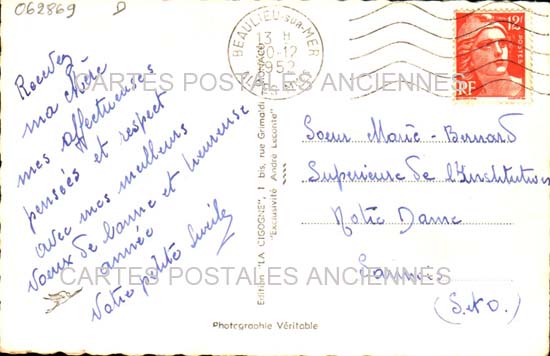 062869 D
BEAULIEU-SUR-MER
13 H
30-12
1952
12F
POSTES
RF
CARTES POSTALES ANCIENNES
Recevez
ma chère
mes affectueuses
pensées et respect
avec mes meilleurs
voeux de bonne et heureuse
année
Votre petite
Edition "LA CIGOGNE", 1 bis, rue Grimaldi, MONACO
"Exclusivité André Leconte"
Soeur Marie-Bernard
Supérieure de l'Institution
Notre Dame
(S.&O.)
CARTES POSTALES ANCIENNES
Photographie Véritable